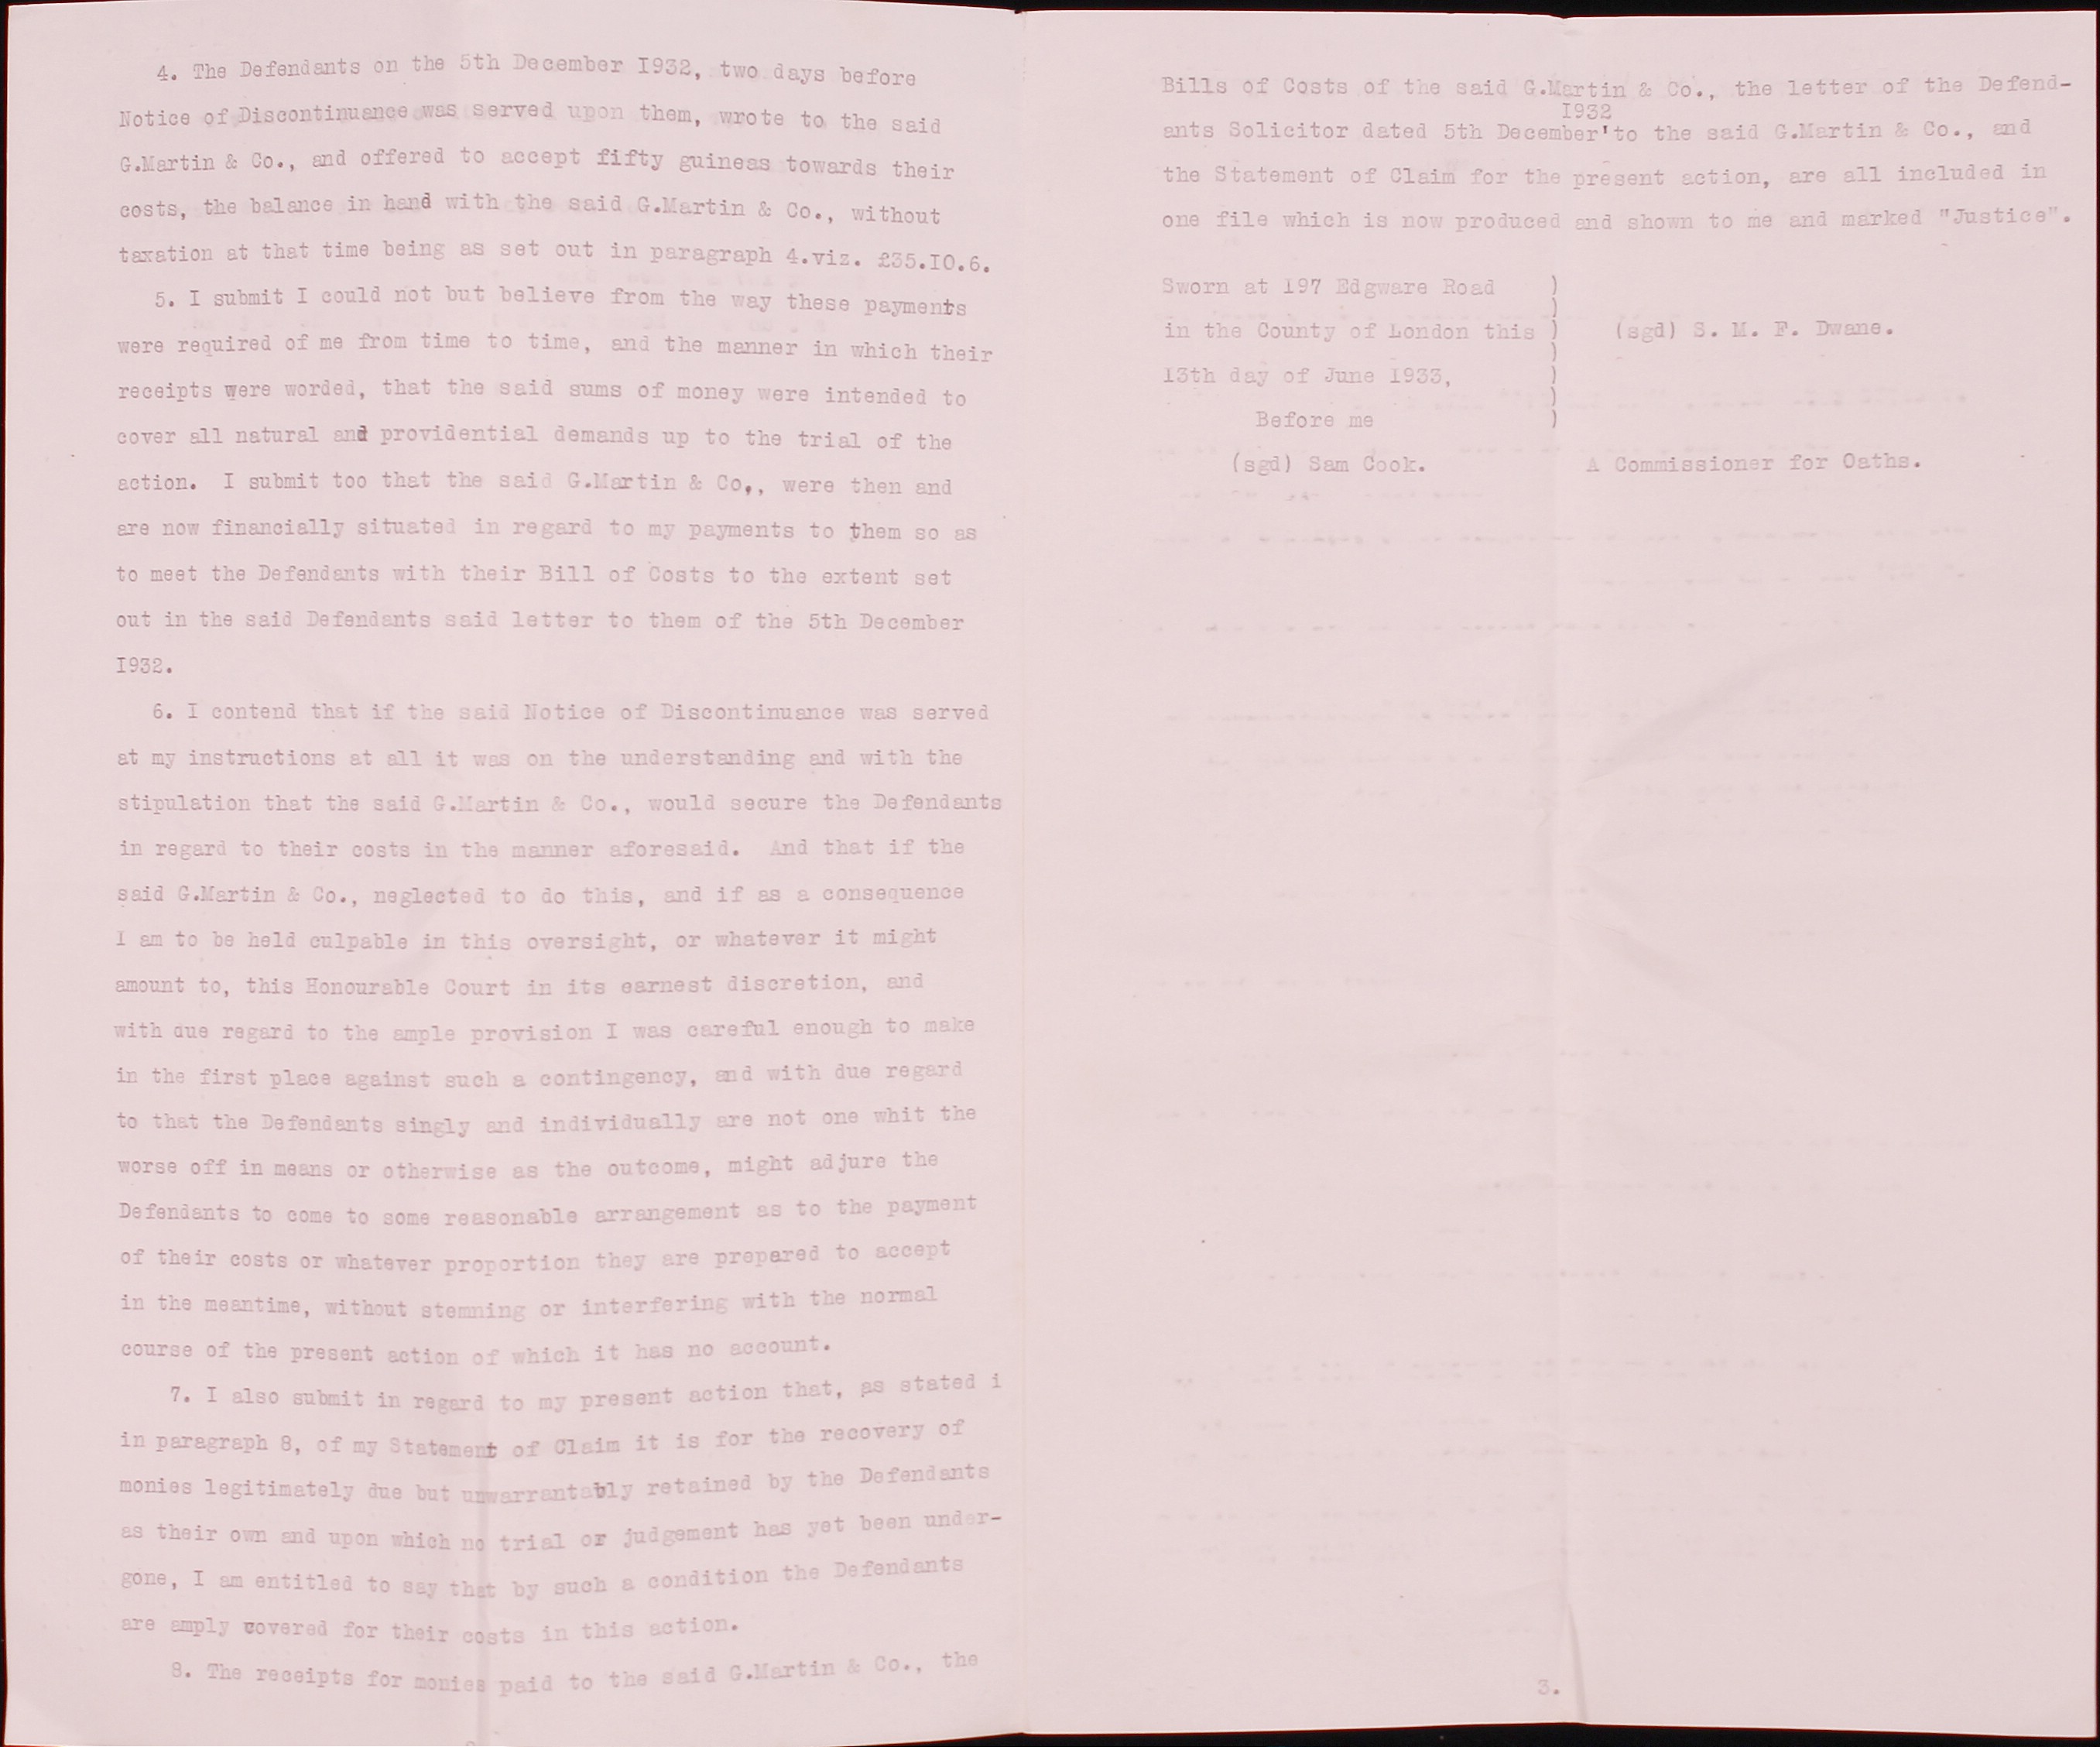 4. The Defendants on the 5th December I932, two days before
Notice of Discontinuance was served upon them, wrote to the said
G.Martin & Co., and offered to accept fifty guineas towards their
costs, the balance in hand with the said G.Martin & Co., without
taxation at that time being as set out in paragraph 4.viz. £35.I0.6.
5. I submit I could not but believe from the way these payments
were required of me from time to time, and the manner in which their
receipts were worded, that the said sums of money were intended to
cover all natural and providential demands up to the trial of the
action. I submit too that the said G.Martin & Co,, were then and
are now financially situated in regard to my payments to them so as
to meet the Defendants with their Bill of Costs to the extent set
out in the said Defendants said letter to them of the 5th December
I932.
6. I contend that if the said Notice of Discontinuance was served
at my instructions at all it was on the understanding and with the
stipulation that the said G.Martin & Co., would secure the Defendants
in regard to their costs in the manner aforesaid. And that if the
said G.Martin & Co., neglected to do this, and if as a consequence
I am to be held culpable in this oversight, or whatever it might
amount to, this Honourable Court in its earnest discretion, and
with due regard to the ample provision I was careful enough to make
in the first place against such a contingency, and with due regard
to that the Defendants singly and individually are not one whit the
worse off in means or otherwise as the outcome, might adjure the
Defendants to come to some reasonable arrangement as to the payment
of their costs or whatever proportion they are prepared to accept
in the meantime, without stemning or interfering with the normal
course of the present action of which it has no account.
7. I also submit in regard to my present action that, as stated i
in paragraph 8, of my Statement of Claim it is for the recovery of
monies legitimately due but unwarrantably retained by the Defendants
as their own and upon which no trial or judgement has yet been under-
gone, I am entitled to say that by such a condition the Defendants
are amply covered for their costs in this action.
8. The receipts for monies paid to the said G.Martin & Co., the
Bills of Costs of the said G.Martin & Co., the letter of the Defend-
I932
ants Solicitor dated 5th December'to the said G.Martin & Co., and
the Statement of Claim for the present action, are all included in
one file which is now produced and shown to me and marked "Justice".
Sworn at I97 Edgware Road )
)
in the County of London this ) (sgd) S. M. F. Dwane.
)
I3th day of June I933, )
)
Before me )
(sgd) Sam Cook. A Commissioner for Oaths.
3.